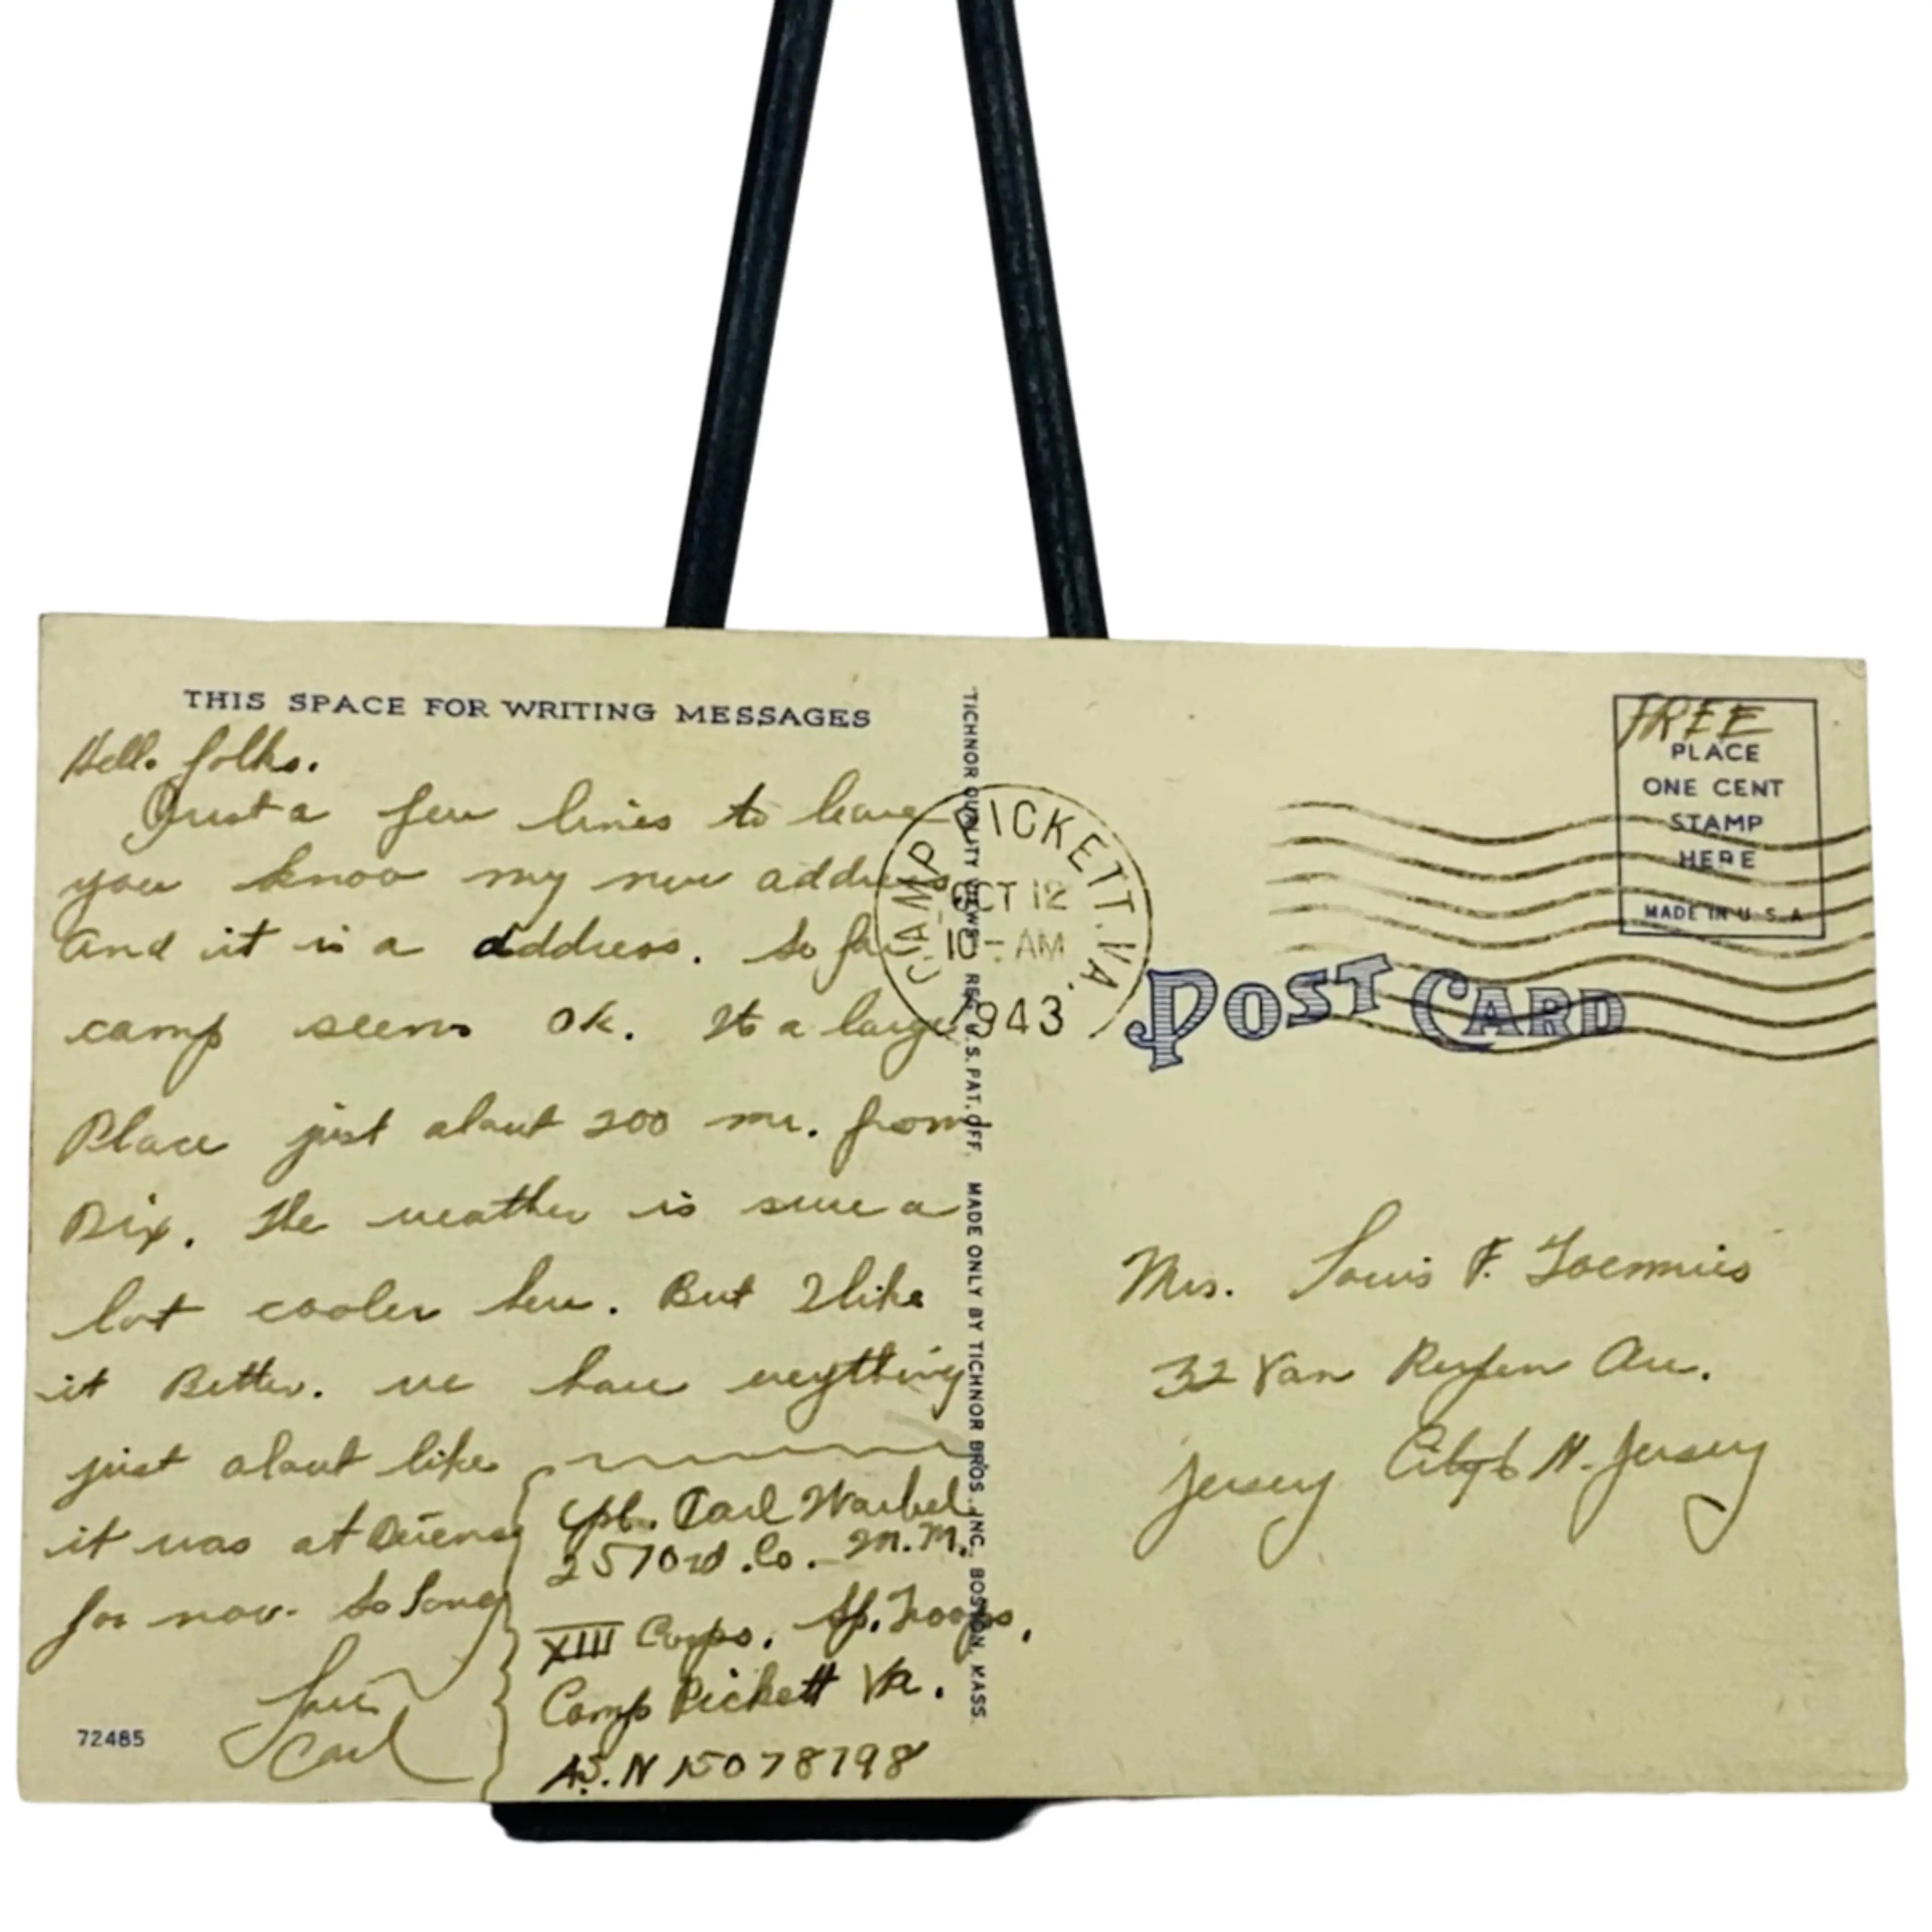 THIS SPACE FOR WRITING MESSAGES
Hello folks.
Just a few lines to leave
you know my new address
and it is a address. So far
camp seems OK. Its a large
Place just about 200 mi. from
Dix. The weather is sure a
lot cooler here. But I like
it Better. we have everything
just about like
it was at
for now. So Long
Carl
72485
Cpl. Carl
Co. M.M.
XIII Corps. Sp. Troops.
Camp Pickett Va.
A.S.N 15078798
TICHNOR QUALITY VIEWS REG. U.S. PAT. OFF. MADE ONLY BY TICHNOR BROS. INC., BOSTON, MASS.
CAMP PICKETT. VA.
OCT 12
10-AM
1943
FREE
PLACE
ONE CENT
STAMP
HERE
MADE IN U.S.A
POST CARD
Mrs. Louis F. Toennies
32 Van Reypen Ave.
Jersey City 6 N. Jersey